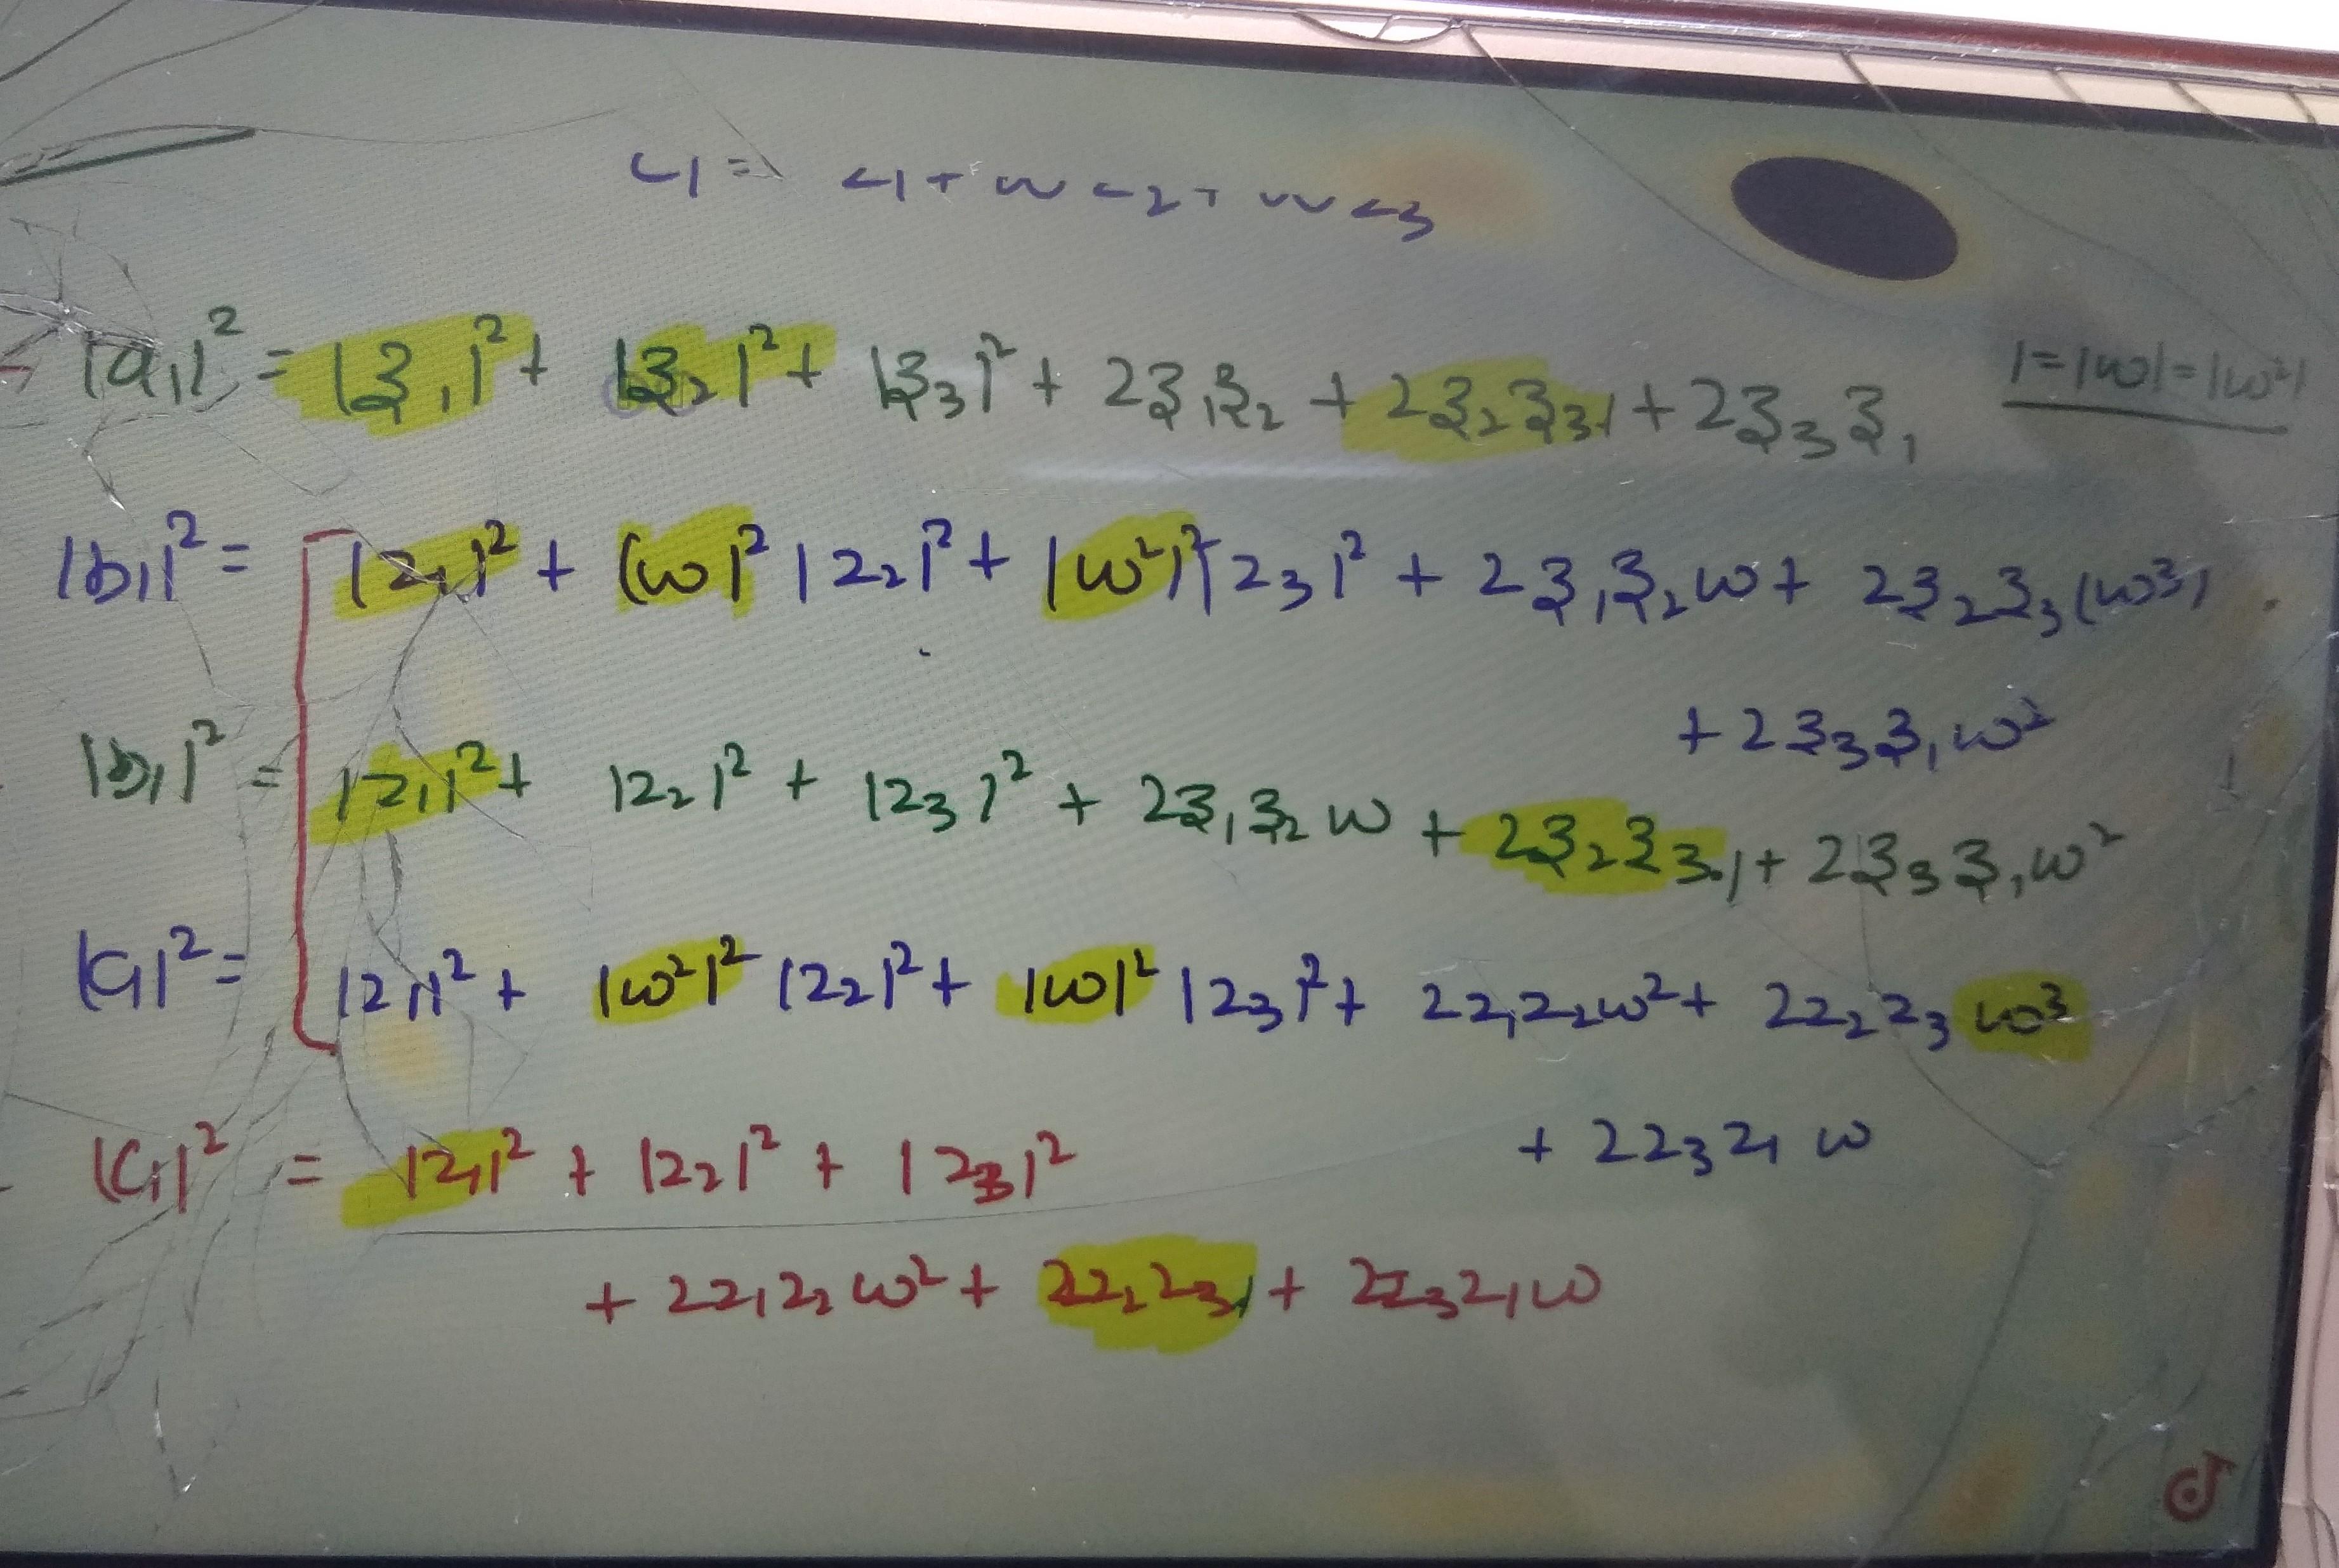 |a₁|² = |z₁|² + |z₂|² + |z₃|² + 2z₁z₂ + 2z₂z₃·1 + 2z₃z₁
1=|ω|=|ω²|
|b₁|² = |z₁|² + |ω|² |z₂|² + |ω²|²|z₃|² + 2z₁z₂ω + 2z₂z₃(ω³)
+ 2z₃z₁ω²
|b₁|² = |z₁|² + |z₂|² + |z₃|² + 2z₁z₂ω + 2z₂z₃·1 + 2z₃z₁ω²
|c₁|² = |z₁|² + |ω²|² |z₂|² + |ω|² |z₃|² + 2z₁z₂ω² + 2z₂z₃ω³
+ 2z₃z₁ω
|c₁|² = |z₁|² + |z₂|² + |z₃|²
+ 2z₁z₂ω² + 2z₂z₃·1 + 2z₃z₁ω